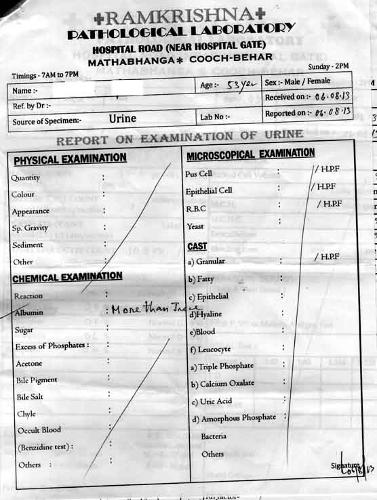 ✚RAMKRISHNA✚
PATHOLOGICAL LABORATORY
HOSPITAL ROAD (NEAR HOSPITAL GATE)
MATHABHANGA* COOCH-BEHAR
Timings - 7AM to 7PM Sunday - 2PM
Name :- Age :- 53 yrs Sex :- Male / Female
Ref. by Dr :- Received on :- 06.08.13
Source of Specimen: Urine Lab No :- Reported on :- 06.08.13
REPORT ON EXAMINATION OF URINE
PHYSICAL EXAMINATION
Quantity :
Colour :
Appearance :
Sp. Gravity :
Sediment :
Other :
CHEMICAL EXAMINATION
Reaction :
Albumin : More than Trace
Sugar :
Excess of Phosphates :
Acetone :
Bile Pigment :
Bile Salt :
Chyle :
Occult Blood :
(Benzidine test) :
Others :
MICROSCOPICAL EXAMINATION
Pus Cell : / H.P.F
Epithelial Cell : / H.P.F
R.B.C : / H.P.F
Yeast :
CAST
a) Granular : / H.P.F
b) Fatty :
c) Epithelial :
d) Hyaline :
e) Blood :
f) Leucocyte :
a) Triple Phosphate :
b) Calcium Oxalate :
c) Uric Acid :
d) Amorphous Phosphate :
Bacteria
Others
Signature